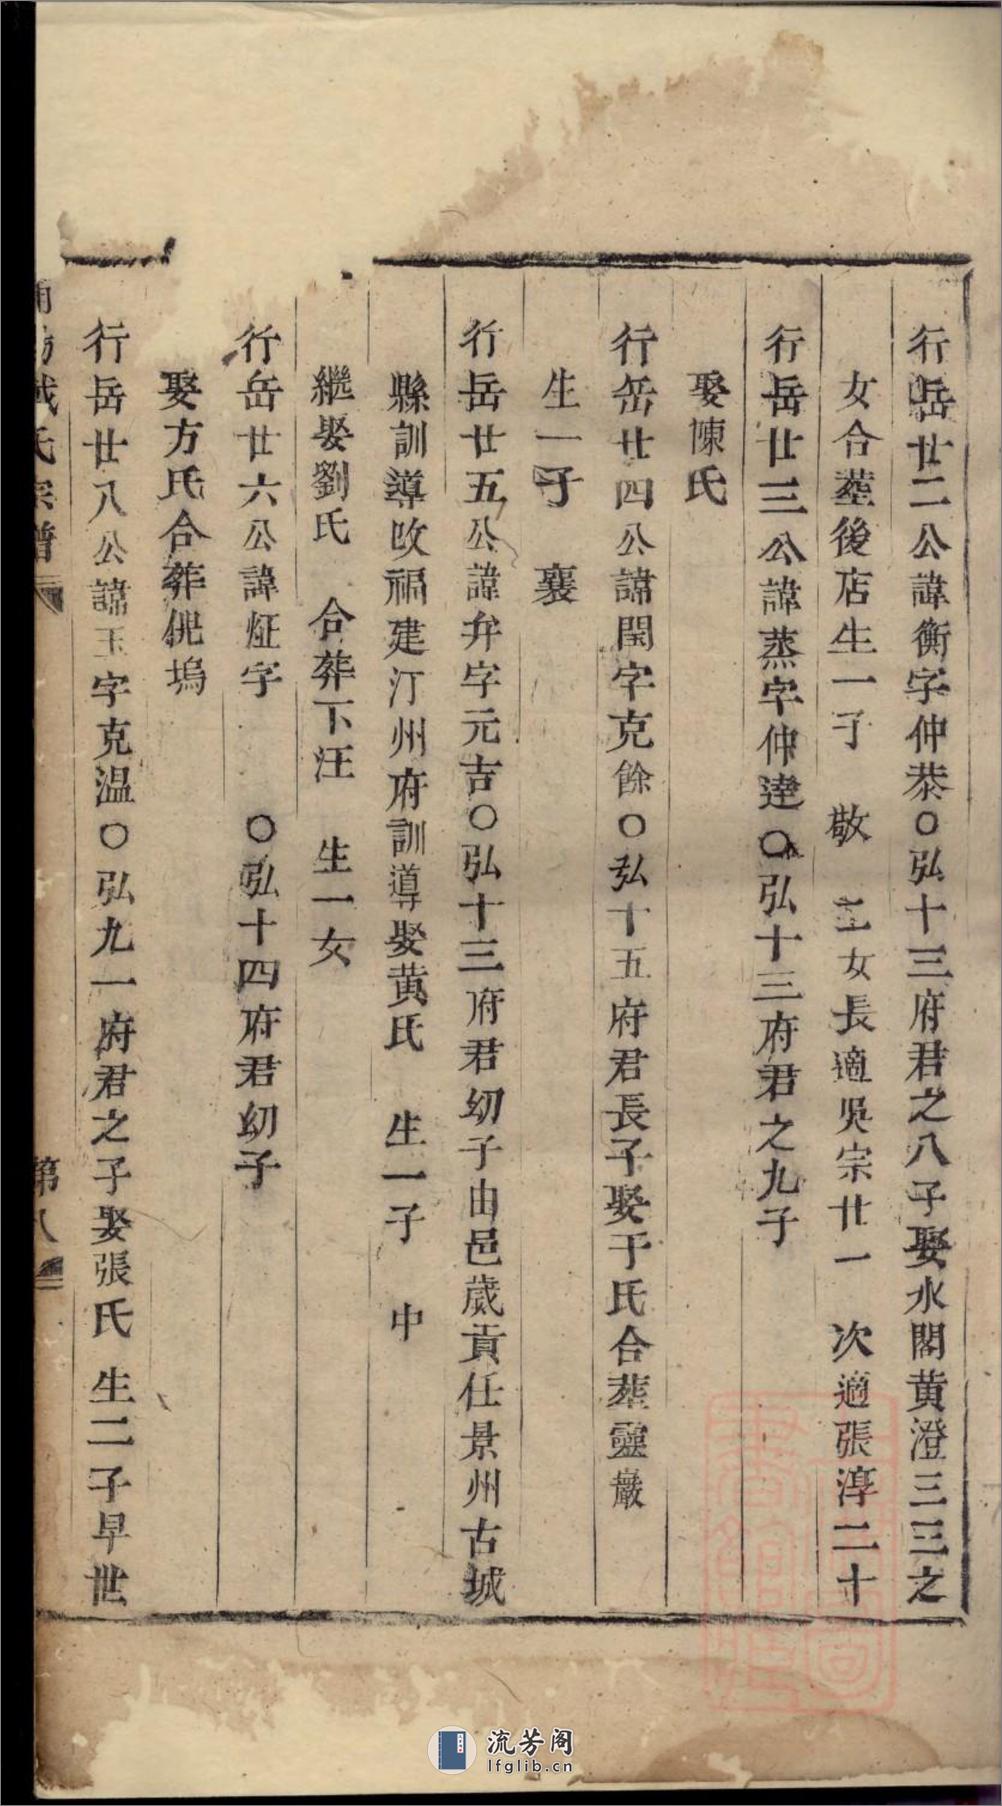 行岳廿二公諱衡字仲恭○弘十三府君之八子娶水閣黄澄三三之
女合塟後店生一子　敬　二女長適吳宗廿一　次適張淳二十
行岳廿三公諱蒸字仲達○弘十三府君之九子
娶陳氏
行岳廿四公諱閏字克餘○弘十五府君長子娶于氏合塟靈巖
生一子　襄
行岳廿五公諱弁字元吉○弘十三府君幼子由邑歲貢任景州古城
縣訓導改福建汀州府訓導娶黄氏　生一子　中
繼娶劉氏　合葬下汪　生一女
行岳廿六公諱炡字　○弘十四府君幼子
娶方氏合葬㑚塢
行岳廿八公諱玉字克温○弘九一府君之子娶張氏　生二子早世
氏宗譜　第八
流芳阁
lfglib.cn